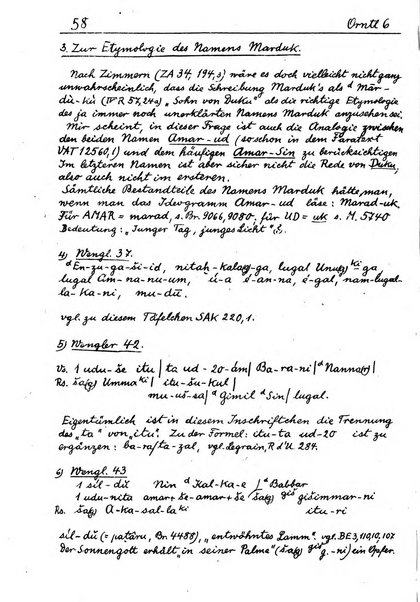 58 Orntl 6
3. Zur Etymologie des Namens Marduk.
Nach Zimmern (ZA 34, 194,3) wäre es doch vielleicht nicht ganz
unwahrscheinlich, dass die Schreibung Marduk's als ᵈMār-
dù-kù (IV R 57, 24a) „Sohn von Duku" als die richtige Etymologie
des ja immer noch unerklärten Namens Marduk anzusehen sei.
Mir scheint, in dieser Frage ist auch die Analogie zwischen
den beiden Namen Amar-ud (so schon in dem Faratext
VAT 12560,1) und dem häufigen Amar-Sin zu berücksichtigen
Im letzteren Namen ist aber sicher nicht die Rede von Duku,
also auch nicht im ersteren.
Sämtliche Bestandteile des Namens Marduk hätte man,
wenn man das Ideogramm Amar-ud läse: Marad-uk.
Für AMAR = marad, s. Br. 9066, 9080, für UD = uk s. M. 5740
Bedeutung: „Junger Tag, junges Licht".
4) Wengl. 37.
ᵈEn-zu-ga-ši-id, nitaḫ-kala(g)-ga, lugal Unu(g)ᵏⁱ-ga,
lugal Am-na-nu-um, ú-a é-an-na, é-gal, nam-lugal-
la-ka-ni, mu-dū.
vgl. zu diesem Täfelchen SAK 220,1.
5) Wengler 42.
Vs. 1 udu-še itu | ta ud-20-ám | Ba-ra-ni | ᵈNanna(r) |
Rs. ša(g) Ummaᵏⁱ | itu-šu-kul |
mu-us-sa | ᵈGimil ᵈSin | lugal.
Eigentümlich ist in diesem Inschriftchen die Trennung
des „ta" von „itu". Zu der Formel: itu-ta ud-20 ist zu
ergänzen: ba-ra/ta-zal, vgl. Legrain, R d'U. 284.
6) Wengl. 43
1 síl-dū Nin ᵈKal-ka-e | ᵈBabbar
1 udu-nita amar še-amar+še ša(g) ᵍⁱˢ gišimmar-ni
Rs. ša(g) A-ka-sal-laᵏⁱ itu-ri
síl-dū (= paṭāru, Br. 4488), „entwöhntes Lamm". vgl. BE 3,110,10,107
Der Sonnengott erhält „in seiner Palme" (ša(g) ᵍⁱˢ g.-ni) ein Opfer.